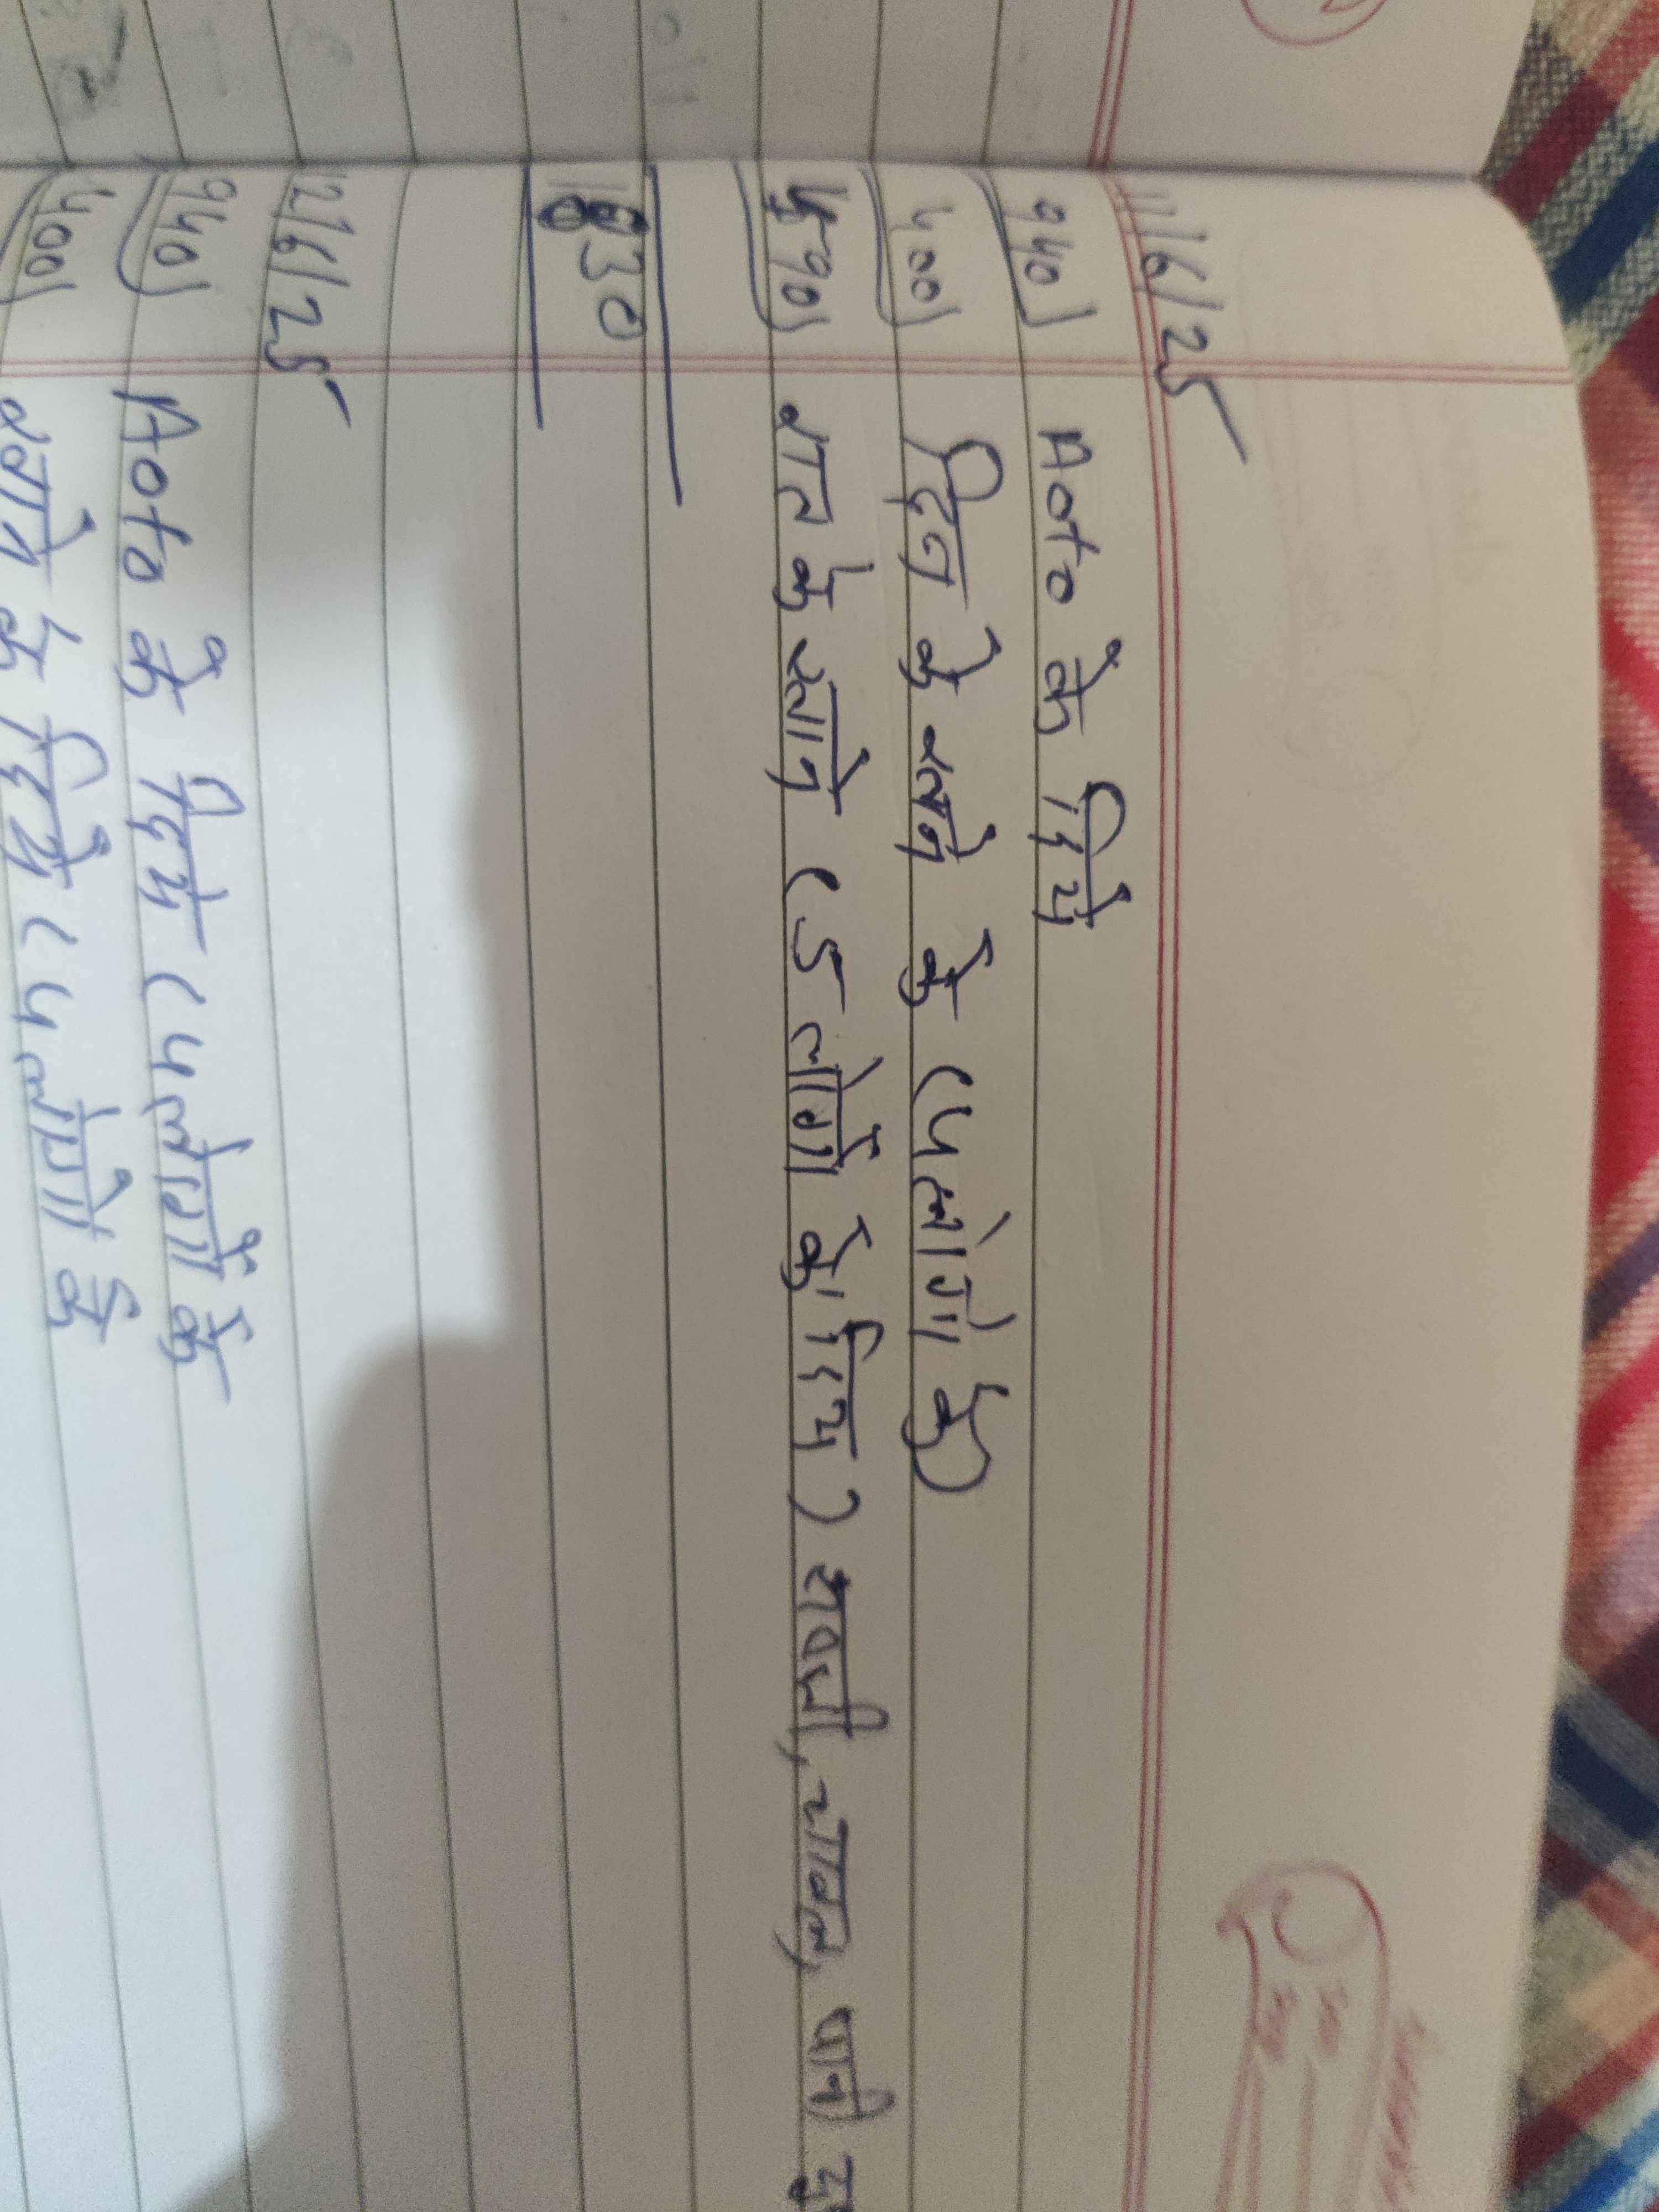 11/6/25
940) Aoto के दिये
400) दिन के खाने के (4 लोगो के)
490) रात के खाने (5 लोगों के दिये) सब्जी, चावल, पानी
1830
12/6/25
940) Aoto के दिये (4 लोगों के
400) खाने के दिये (4 लोगों के